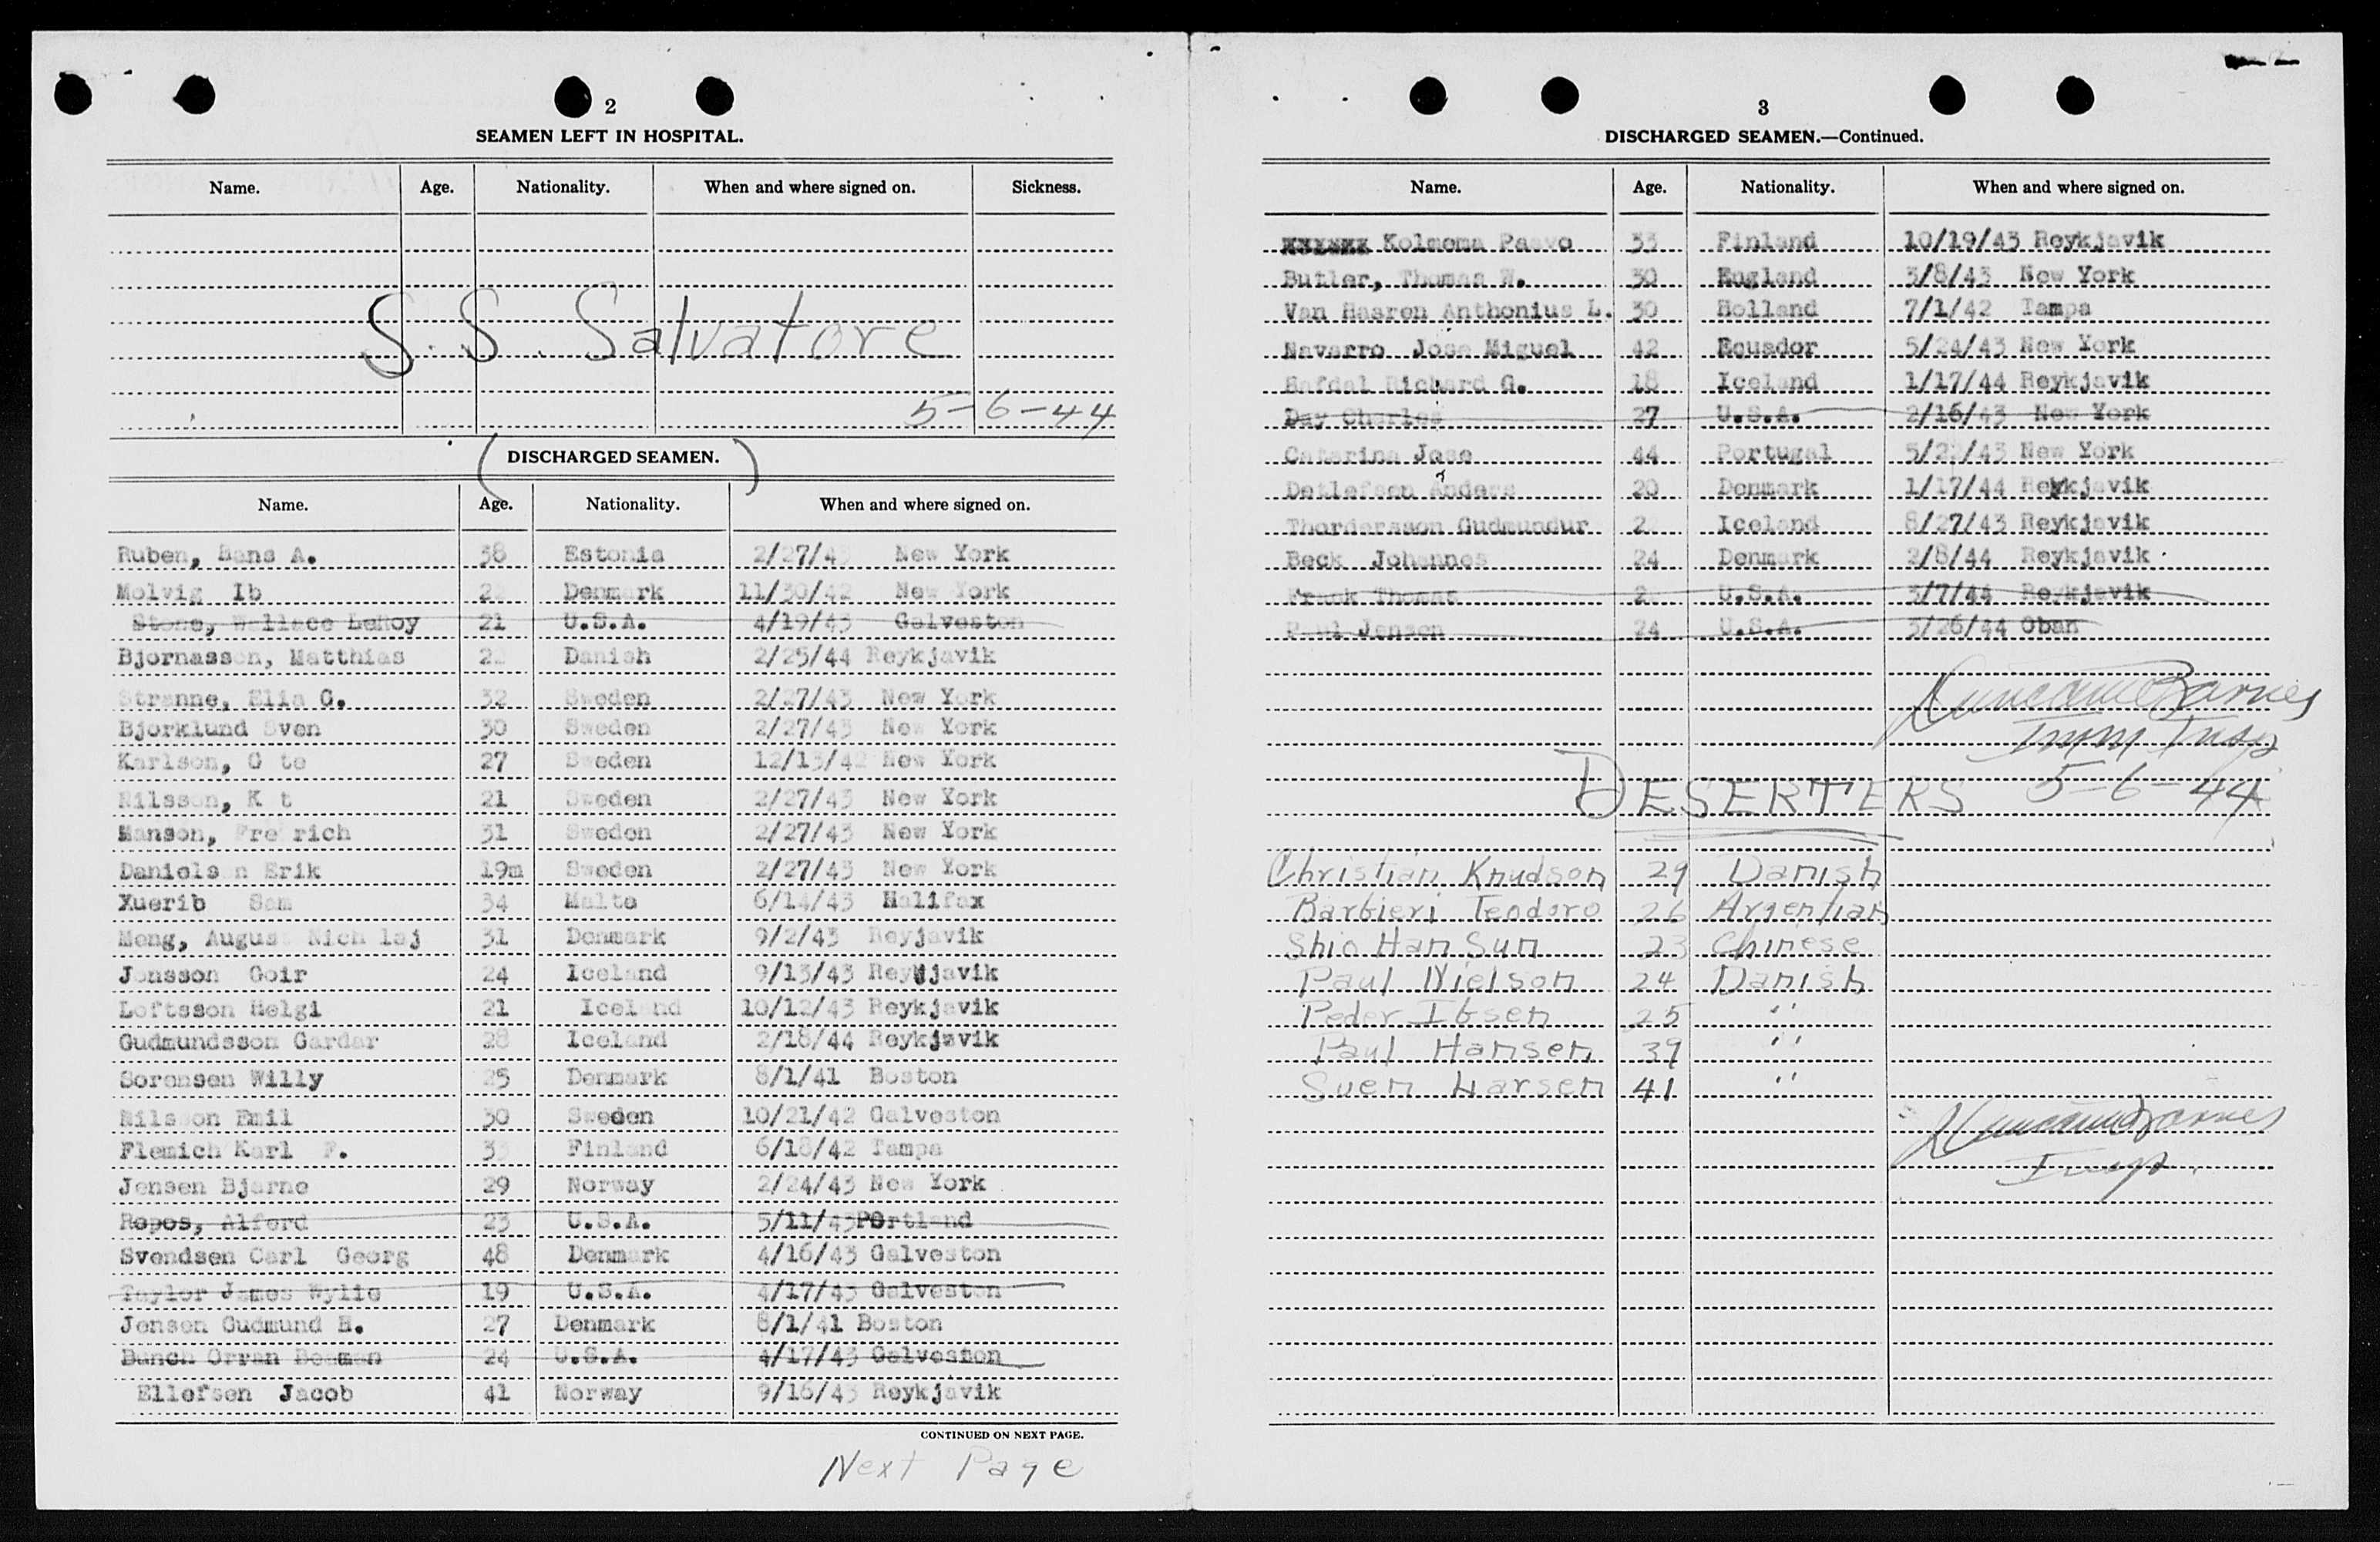 2
SEAMEN LEFT IN HOSPITAL.
Name. Age. Nationality. When and where signed on. Sickness.
S.S. Salvatore
5-6-44
(DISCHARGED SEAMEN.)
Name. Age. Nationality. When and where signed on.
Ruben, Hans A. 38 Estonia 2/27/4 New York
Molvig Ib 2 Denmark 11/30/42 New York
Stone, Wallace LeRoy 21 U.S.A. 4/19/43 Galveston
Bjornasson, Matthias 2 Danish 2/25/44 Reykjavik
Stranne, Elis G. 32 Sweden 2/27/43 New York
Bjorklund Sven 30 Sweden 2/27/43 New York
Karlson, G te 27 Sweden 12/13/42 New York
Nilsson, K t 21 Sweden 2/27/43 New York
Manson, Fre rich 31 Sweden 2/27/43 New York
Daniels n Erik 19m Sweden 2/27/43 New York
Xuerib Sam 34 Malta 6/14/43 Halifax
Meng, Augus Nich laj 31 Denmark 9/2/43 Reyjavik
Jonsson Geir 24 Iceland 9/13/43 Reykjavik
Loftsson Helgi 21 Iceland 10/12/43 Reykjavik
Gudmundsson Gardar 28 Iceland 2/18/44 Reykjavik
Sorensen Willy 25 Denmark 8/1/41 Boston
Nilsson Emil 30 Sweden 10/21/42 Galveston
Flemich Karl F. 33 Finland 6/18/42 Tampa
Jensen Bjarne 29 Norway 2/24/43 New York
Ropos, Alferd 23 U.S.A. 5/11/43 POrtland
Svendsen Carl Georg 48 Denmark 4/16/43 Galveston
Taylor James Wylie 19 U.S.A. 4/17/43 Galveston
Jensen Gudmund H. 27 Denmark 8/1/41 Boston
Bunch Orran Beaman 24 U.S.A. 4/17/43 Galveston
Ellefsen Jacob 41 Norway 9/16/43 Reykjavik
CONTINUED ON NEXT PAGE.
Next Page
3
DISCHARGED SEAMEN.—Continued.
Name. Age. Nationality. When and where signed on.
Kolmoma Paavo 33 Finland 10/19/43 Reykjavik
Butler, Thomas W. 30 England 3/8/43 New York
Van Hasren Anthonius L. 30 Holland 7/1/42 Tampa
Navarro Jose Miguel 42 Ecuador 5/24/43 New York
Hafdal Richard G. 18 Iceland 1/17/44 Reykjavik
Day Charles 27 U.S.A. 2/16/43 New York
Catarina Jose 44 Portugal 5/22/43 New York
Detlefsen Anders 20 Denmark 1/17/44 Reykjavik
Thordarsson Gudmundur 2 Iceland 8/27/43 Reykjavik
Beck Johannes 24 Denmark 2/8/44 Reykjavik
Frank Thomas 2 U.S.A. 3/7/44 Reykjavik
Paul Jensen 24 U.S.A. 3/26/44 Oban
Duncan Barnes
Imm. Insp
DESERTERS 5-6-44
Christian Knudson 29 Danish
Barbieri Teodoro 26 Argentian
Shio Han Sun 23 Chinese
Paul Nielson 24 Danish
Peder Ibsen 25 "
Paul Hansen 39 "
Suen Larsen 41 "
Duncan Barnes
Insp.